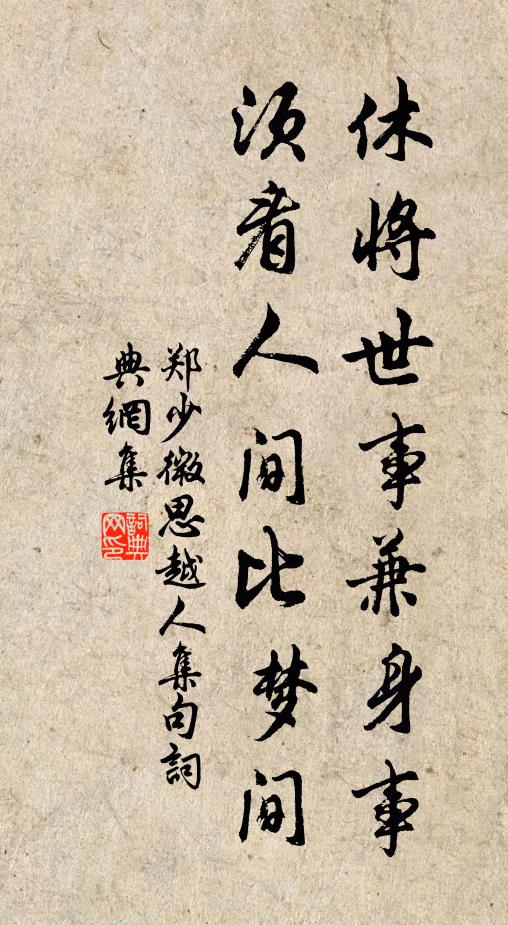 休将世事兼身事
须看人间比梦间
郑少微思越人集句詞
典網集
詞典网印